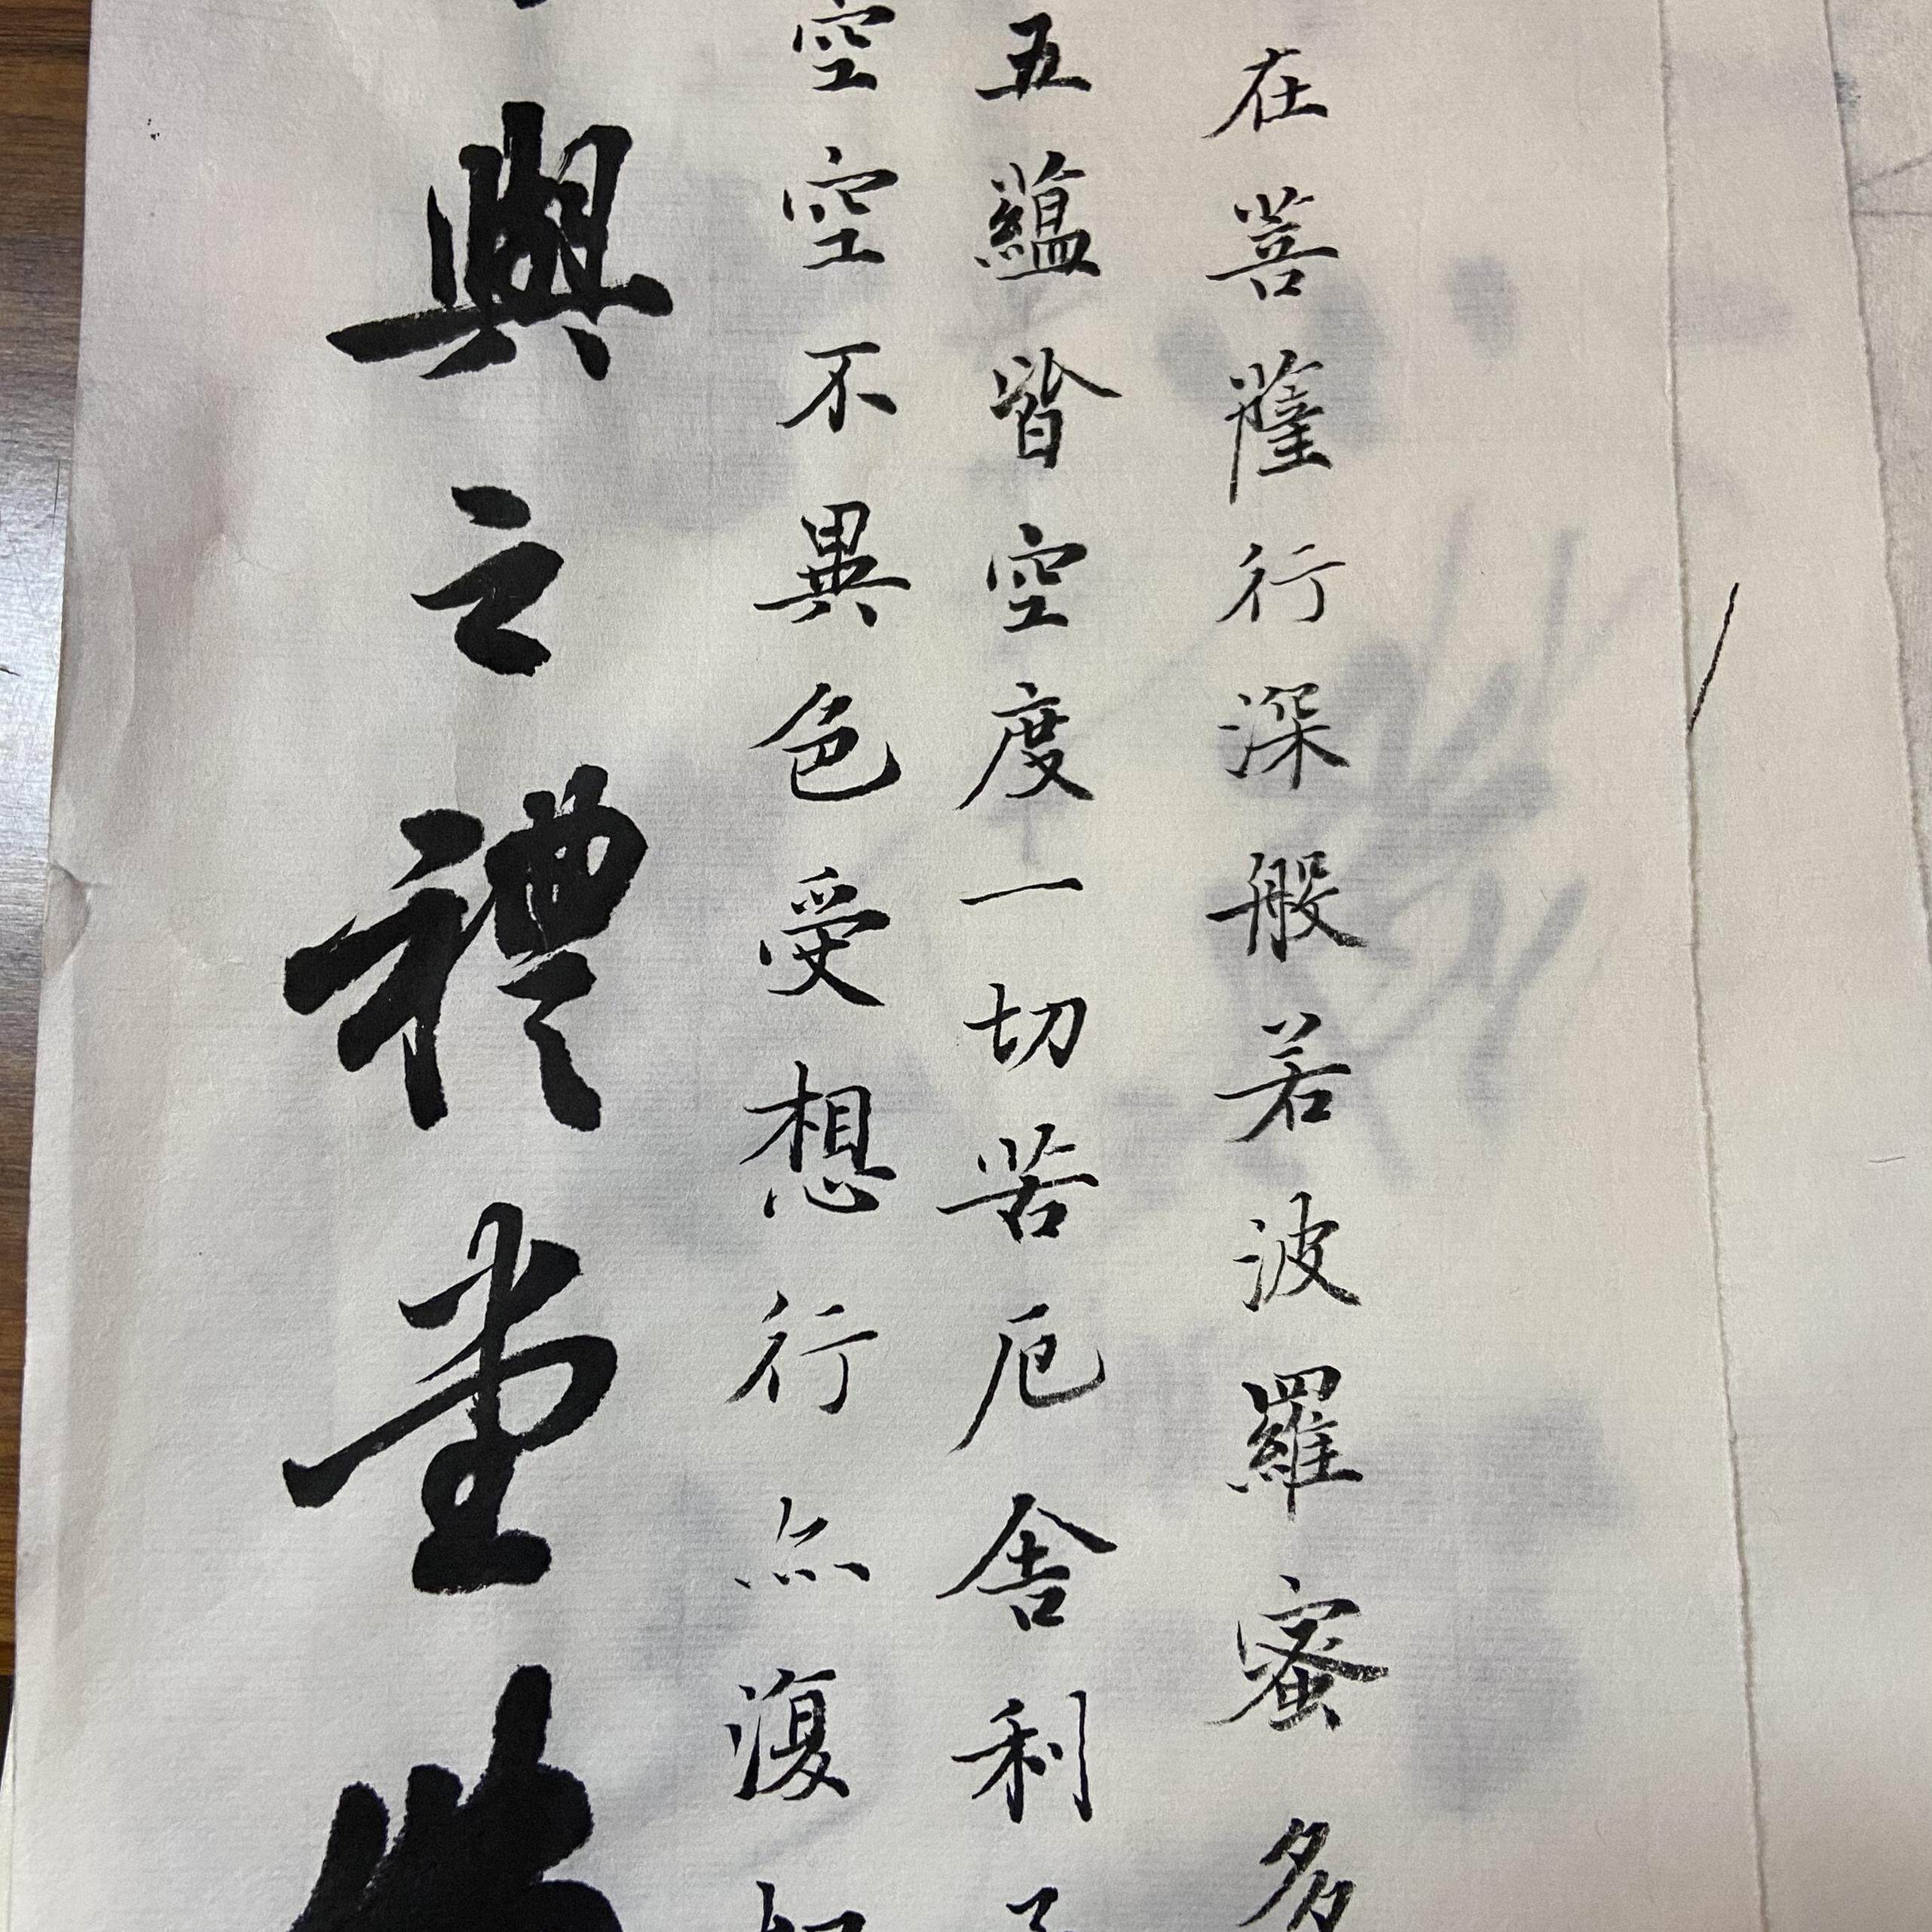 在菩薩行深般若波羅蜜多
五蘊皆空度一切苦厄舍利子
空空不異色受想行亦復如
興之禮堂